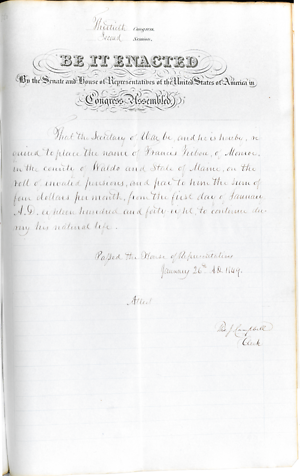 Thirtieth Congress
Second Session
BE IT ENACTED
By the Senate and House of Representatives of the United States of America in
Congress Assembled,
That the Secretary of War be, and he is hereby, re
quired to place the name of Francis , of Monroe,
in the county of Waldo and State of Maine, on the
roll of invalid pensions, and pay to him the sum of
four dollars per month, from the first day of January
A.D. eighteen hundred and forty eight, to continue du
ring his natural life.
Passed the House of Representatives
January 26th A.D. 1849.
Attest
Campbell
Clerk